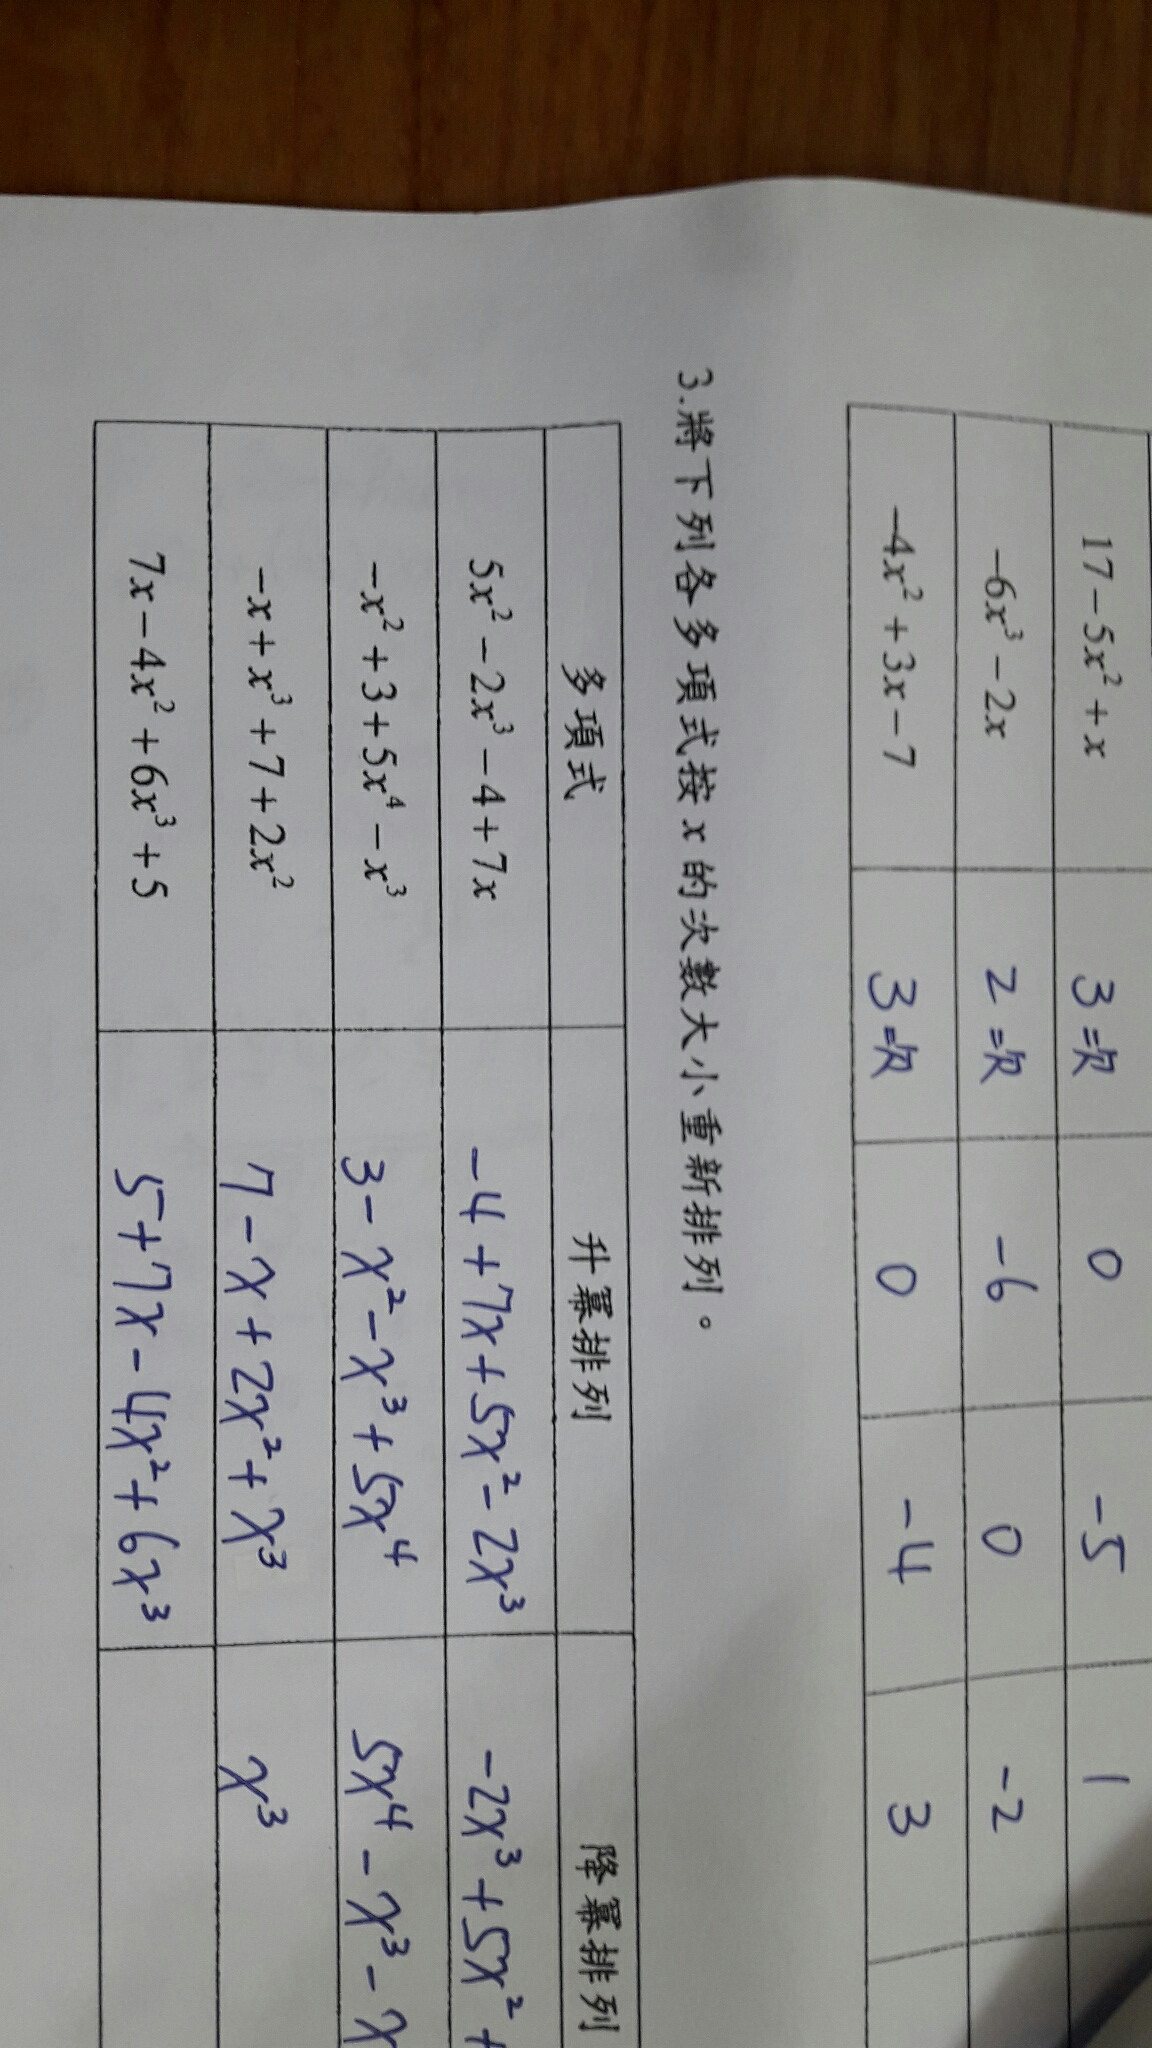 17−5x²+x 3 0 −5 1
−6x³−2x 2 −6 0 −2
−4x²+3x−7 3 0 −4 3
3.將下列各多項式按 x 的次數大小重新排列。
多項式 升冪排列 降冪排列
5x²−2x³−4+7x −4+7x+5x²−2x³ −2x³+5x²+
−x²+3+5x⁴−x³ 3−x²−x³+5x⁴ 5x⁴−x³−x
−x+x³+7+2x² 7−x+2x²+x³ x³
7x−4x²+6x³+5 5+7x−4x²+6x³